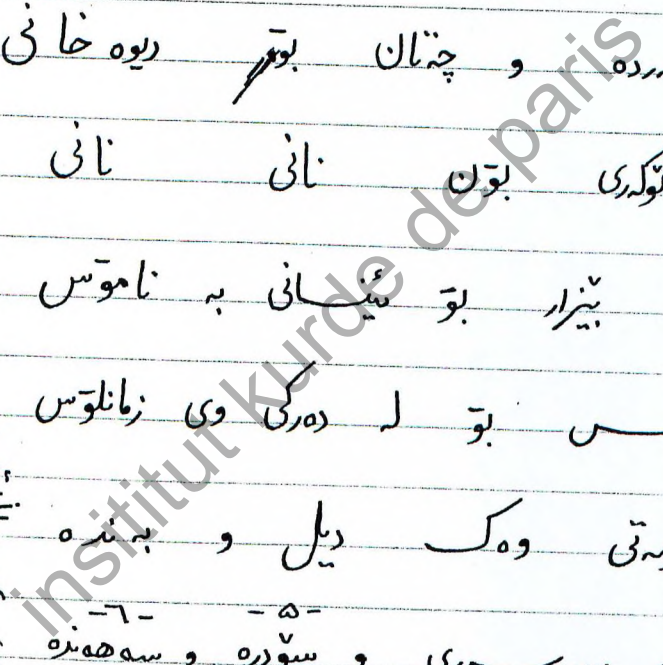 و چەتان بوو دیوەخانی
نۆکەری بۆن نانی نانی
بێزار بۆ ئینسانی بە نامۆس
بۆ لە دەرکی وی زمانلۆس
وەک دیل و بەندە
-٥- -٦-
و سۆدرە و سەهەندە
insititut kurde de paris